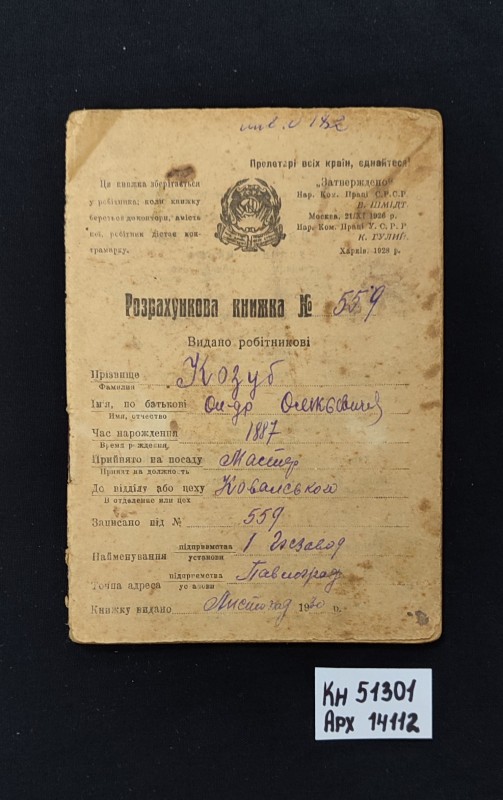 Пролетарі всіх країн, єднайтеся!
Ця книжка зберігається
у робітника; коли книжку
береться до контори, замість
неї, робітник дістає кон-
трамарку.
„Затверждено"
Нар. Ком. Праці С.Р.С.Р.
В. ШМІДТ
Москва. 21/XI 1926 р.
Нар. Ком. Праці У.С.Р.Р
К. ГУЛИЙ
Харків. 1928 р.
Розрахункова книжка № 559
Видано робітникові
Прізвище Козуб
Фамилия
Ім'я, по батькові Ол-др Олексієвич
Имя, отчество
Час народження 1887
Время рождения
Прийнято на посаду Мастер
Принят на должность
До відділу або цеху Ковальськом
В отделение или цех
Записано під № 559
Найменування підприємства установи 1 Госзавод
Точна адреса підприємства установи Павлоград
Книжку видано Листопад 1930 р.
КН 51301
АРХ 14112